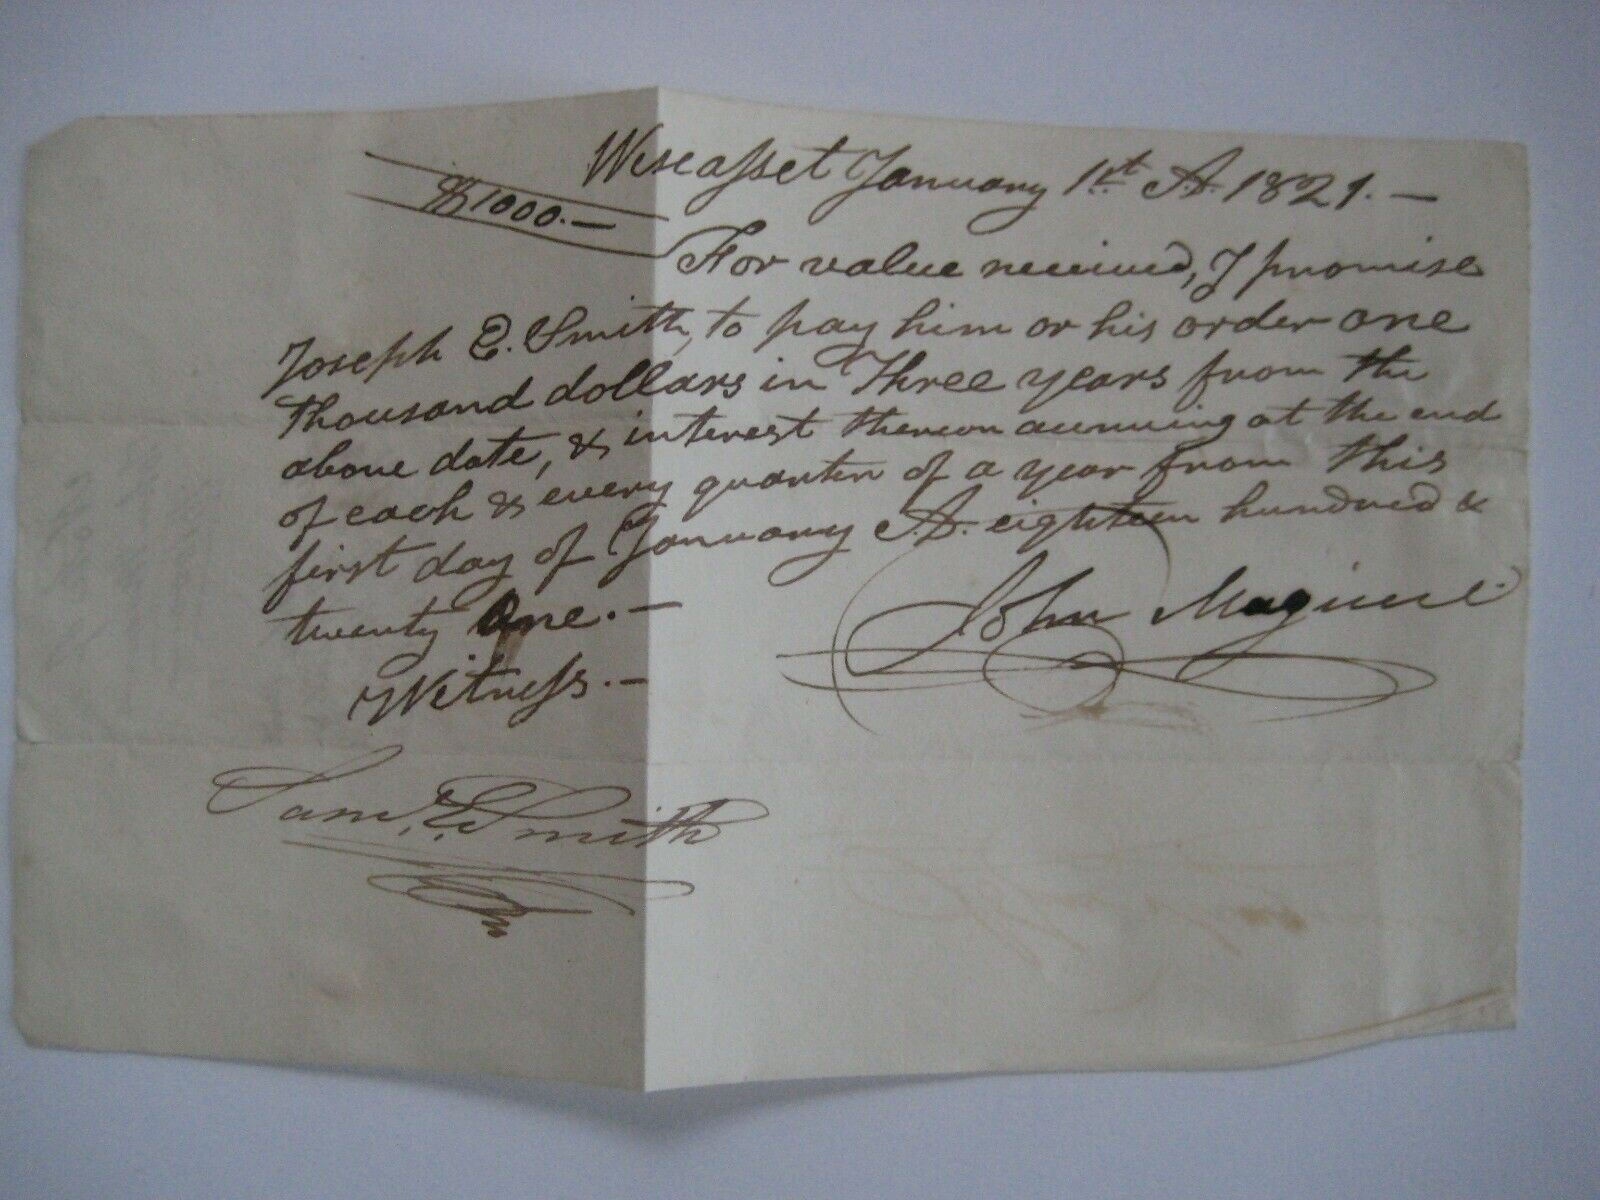 Wiscasset January 1st A.D. 1821.—
$1000.—
For value received, I promise
Joseph E. Smith, to pay him or his order one
thousand dollars in Three years from the
above date, & interest thereon accruing at the end
of each & every quarter of a year from this
first day of January A.D. eighteen hundred &
twenty One.—
John
Witness.—
Saml. E. Smith